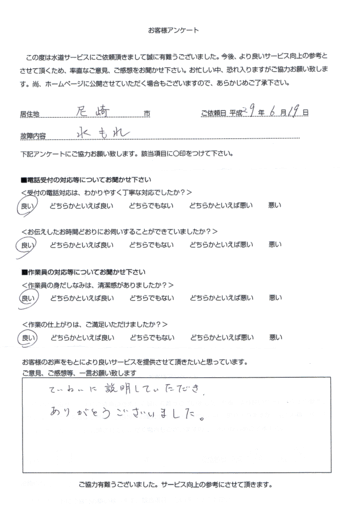 お客様アンケート
この度は水道サービスにご依頼頂きまして誠に有難うございました。今後、より良いサービス向上の参考と
させて頂くため、率直なご意見、ご感想をお聞かせ下さい。お忙しい中、恐れ入りますがご協力お願い致しま
す。尚、ホームページに公開させていただく場合もございますので、あらかじめご了承下さい。
居住地 尼崎 市 ご依頼日 平成29年6月19日
故障内容 水もれ
下記アンケートにご協力お願い致します。該当項目に〇印をつけて下さい。
■電話受付の対応等についてお聞かせ下さい
<受付の電話対応は、わかりやすく丁寧な対応でしたか？>
良い どちらかといえば良い どちらでもない どちらかといえば悪い 悪い
<お伝えしたお時間どおりにお伺いすることができていましたか？>
良い どちらかといえば良い どちらでもない どちらかといえば悪い 悪い
■作業員の対応等についてお聞かせ下さい
<作業員の身だしなみは、清潔感がありましたか？>
良い どちらかといえば良い どちらでもない どちらかといえば悪い 悪い
<作業の仕上がりは、ご満足いただけましたか？>
良い どちらかといえば良い どちらでもない どちらかといえば悪い 悪い
お客様のお声をもとにより良いサービスを提供させて頂きたいと思っています。
ご意見、ご感想等、一言お願い致します
てぃねーに説明していただき、
ありがとうございました。
ご協力有難うございました。サービス向上の参考にさせて頂きます。